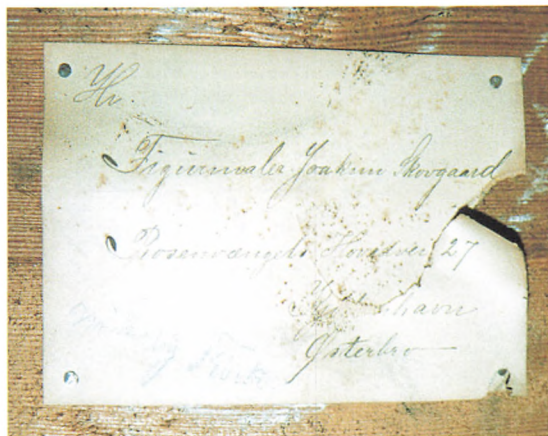 Hr.
Figurmaler Joakim Skovgaard
Rosenvængets Hovedvei 27
Østerbro